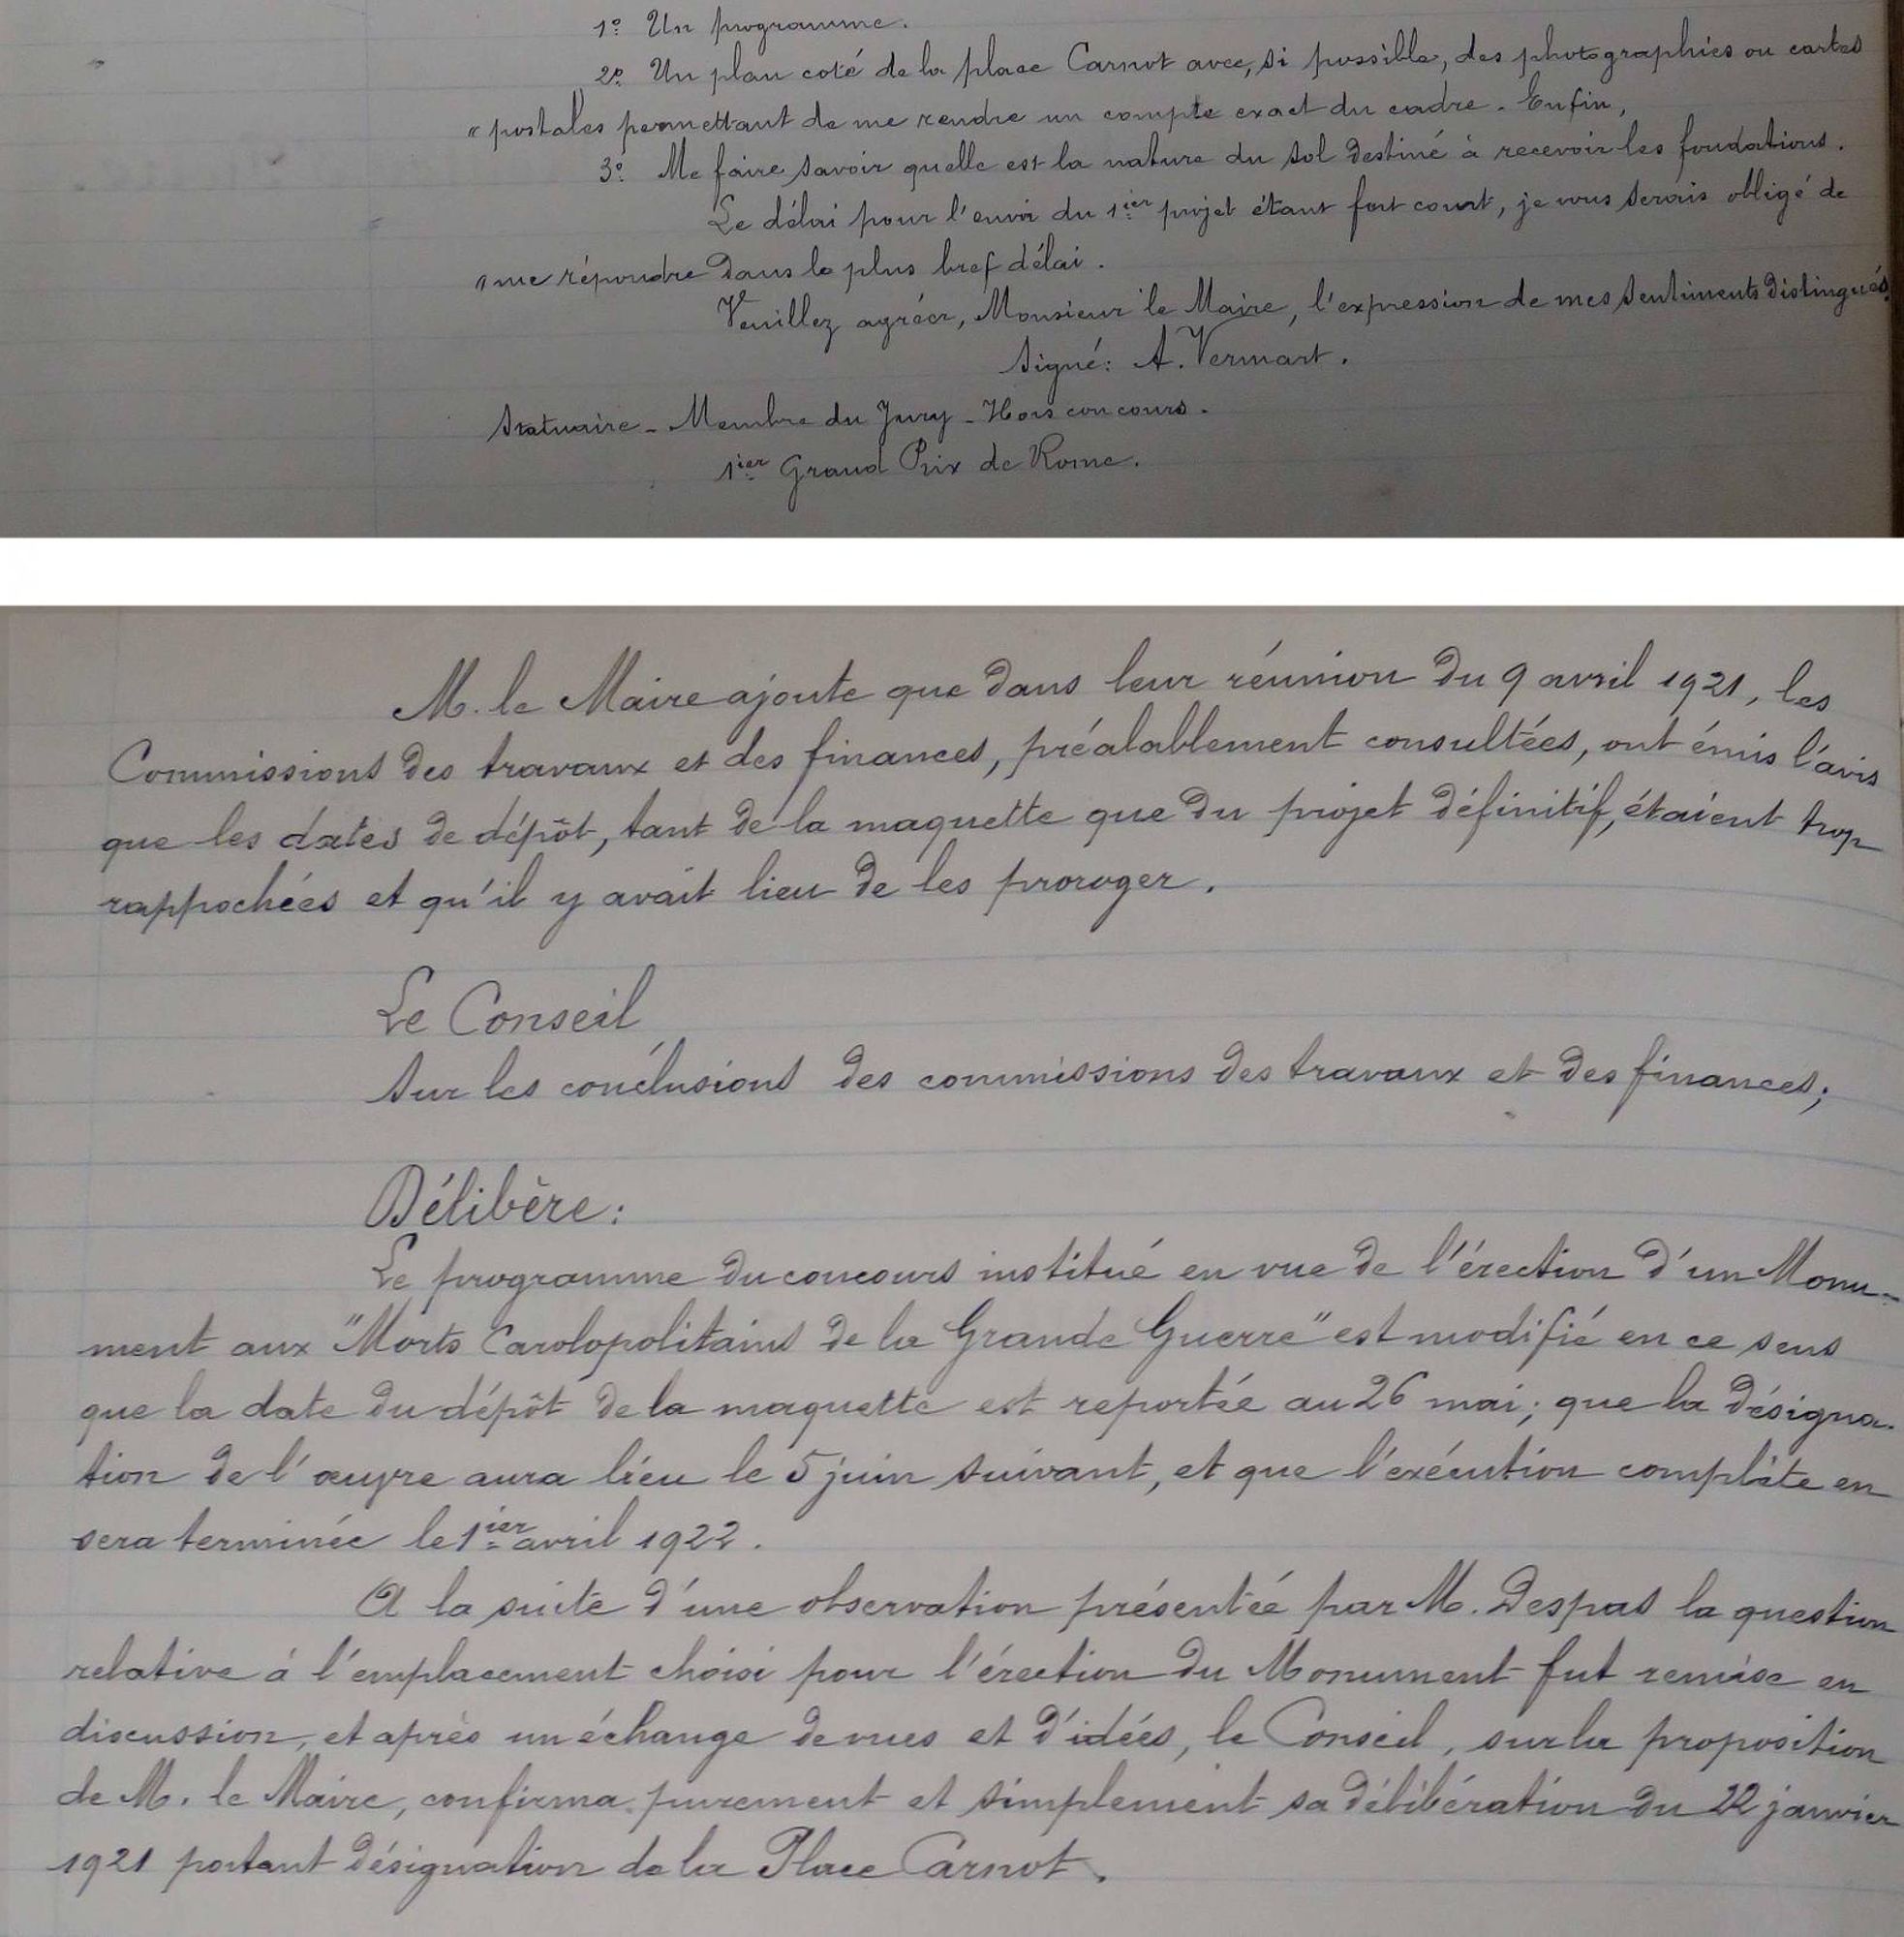 1º Un programme.
2º Un plan coté de la place Carnot avec, si possible, des photographies ou cartes
" postales permettant de me rendre un compte exact du cadre. Enfin,
3º Me faire savoir quelle est la nature du sol destiné à recevoir les fondations.
Le délai pour l'envoi du 1ier projet étant fort court, je vous serais obligé de
" me répondre dans le plus bref délai.
Veuillez agréer, Monsieur le Maire, l'expression de mes sentiments distingués.
Signé: A. Vermart.
Statuaire - Membre du Jury - Hors concours.
1ier Grand Prix de Rome.
M. le Maire ajoute que dans leur réunion du 9 avril 1921, les
Commissions des travaux et des finances, préalablement consultées, ont émis l'avis
que les dates de dépôt, tant de la maquette que du projet définitif, étaient trop
rappochées et qu'il y avait lieu de les proroger.
Le Conseil
Sur les conclusions des commissions des travaux et des finances;
Délibère:
Le programme du concours institué en vue de l'érection d'un Monu-
ment aux "Morts Carolopolitains de la Grande Guerre" est modifié en ce sens
que la date du dépôt de la maquette est reportée au 26 mai; que la désigna-
tion de l'œuvre aura lieu le 5 juin suivant, et que l'exécution complète en
sera terminée le 1ier avril 1922.
A la suite d'une observation présentée par M. Despas la question
relative à l'emplacement choisi pour l'érection du Monument fut remise en
discussion, et après un échange de vues et d'idées, le Conseil, sur la proposition
de M. le Maire, confirma purement et simplement sa délibération du 22 janvier
1921 portant désignation de la Place Carnot.